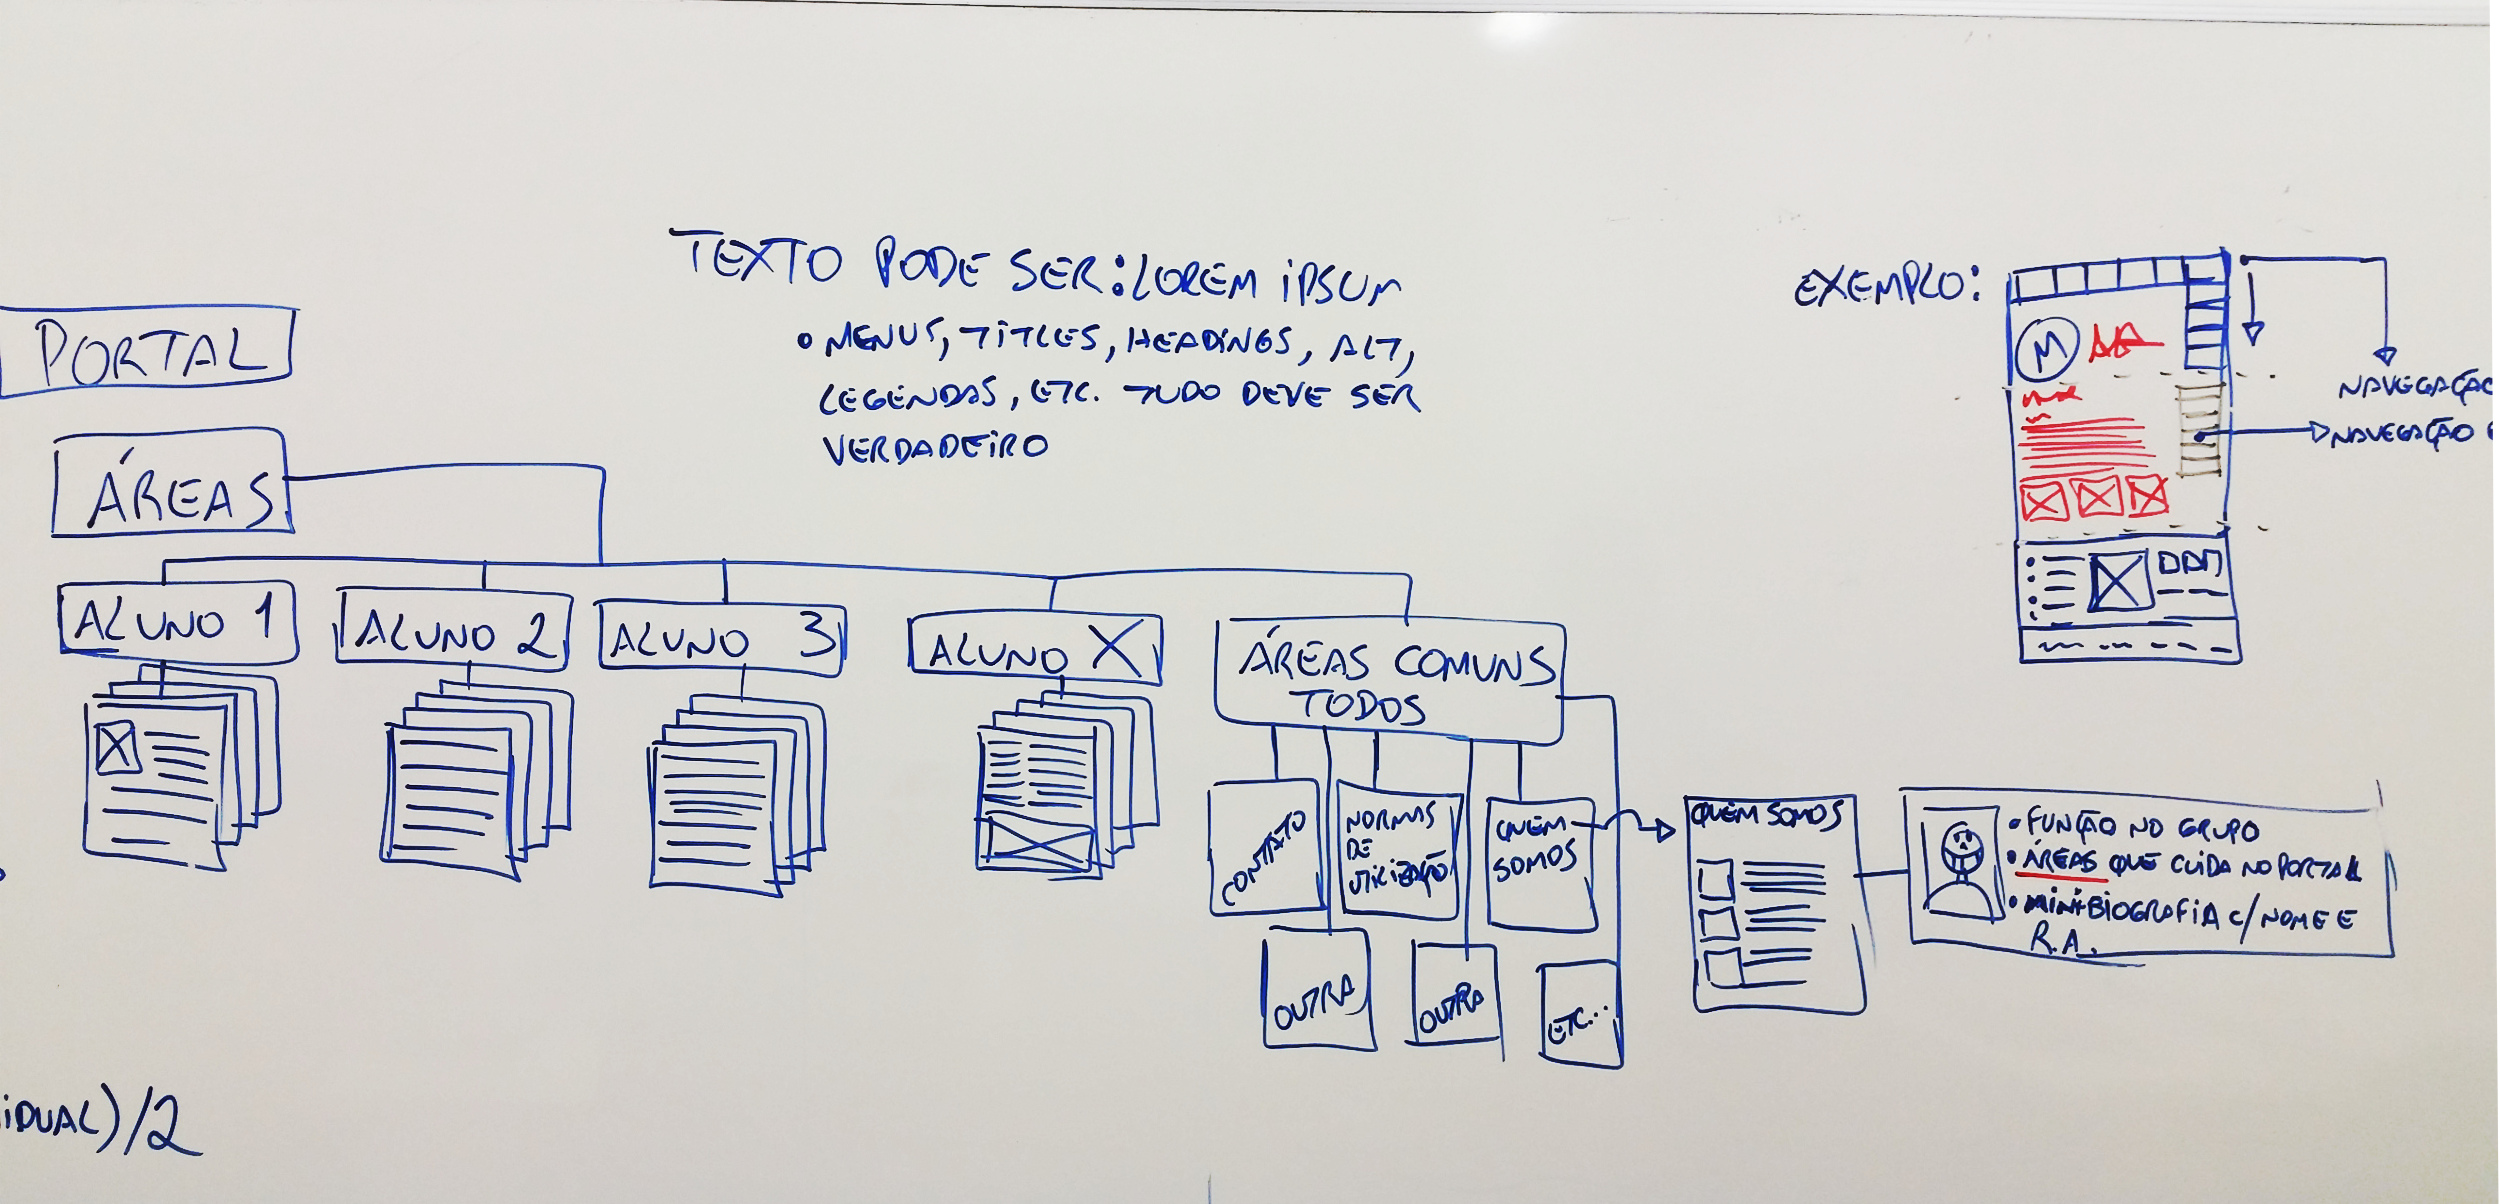 TEXTO PODE SER: LOREM IPSUM
• MENUS, TITLES, HEADINGS, ALT,
LEGENDAS, ETC. TUDO DEVE SER
VERDADEIRO
EXEMPLO:
M
NAVEGAÇÃO
NAVEGAÇÃO
PORTAL
ÁREAS
ALUNO 1
ALUNO 2
ALUNO 3
ALUNO X
ÁREAS COMUNS
TODOS
CONTATO
NORMAS
DE
UTILIZAÇÃO
QUEM
SOMOS
OUTRA
OUTRA
ETC...
QUEM SOMOS
• FUNÇÃO NO GRUPO
• ÁREAS QUE CUIDA NO PORTAL
• MINI-BIOGRAFIA C/ NOME E
R.A.
IDUAL)/2